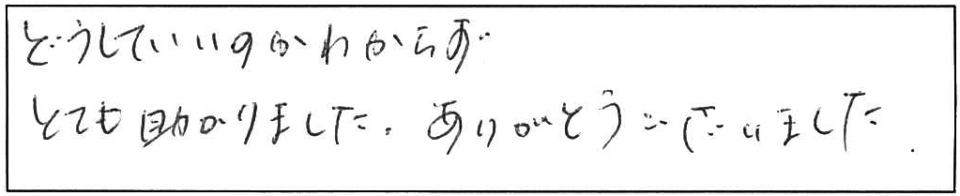 どうしていいのかわからず
とても助かりました。ありがとうございました.